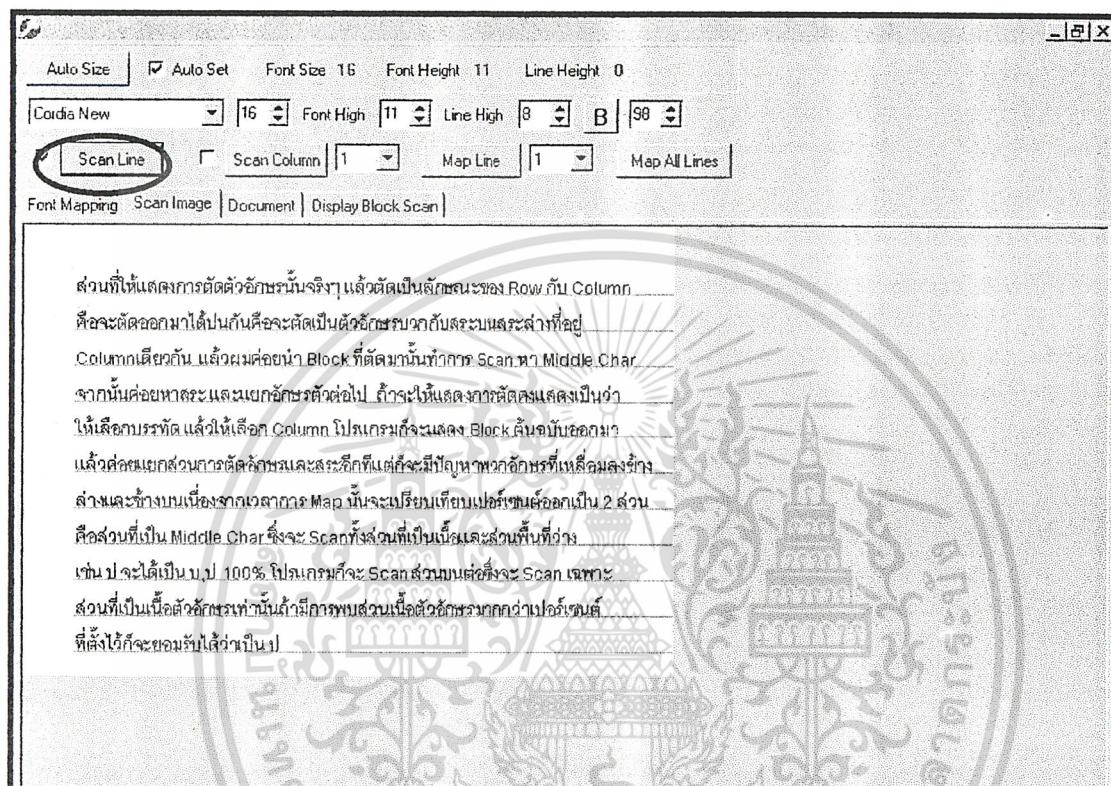 Auto Size Auto Set Font Size 16 Font Height 11 Line Height 0
Cordia New 16 Font High 11 Line High 8 B 98
Scan Line Scan Column 1 Map Line 1 Map All Lines
Font Mapping Scan Image Document Display Block Scan
ส่วนที่ให้แสดงการตัดตัวอักษรนั้นจริงๆ แล้วตัดเป็นลักษณะของ Row กับ Column
คือจะตัดออกมาได้ปนกันคือจะตัดเป็นตัวอักษรบวกกับสระบนสระล่างที่อยู่
Columnเดียวกัน แล้วผมค่อยนำ Block ที่ตัดมานั้นทำการ Scan หา Middle Char
จากนั้นค่อยหาสระและแยกอักษรตัวต่อไป ถ้าจะให้แสดงการตัดคงแสดงเป็นว่า
ให้เลือกบรรทัด แล้วให้เลือก Column โปรแกรมก็จะแสดง Block ต้นฉบับออกมา
แล้วค่อยแยกส่วนการตัดอักษรและสระอีกทีแต่ก็จะมีปัญหาพวกอักษรที่เหลื่อมลงข้าง
ล่างและข้างบนเนื่องจากเวลาการ Map นั้นจะเปรียบเทียบเปอร์เซนต์ออกเป็น 2 ส่วน
คือส่วนที่เป็น Middle Char ซึ่งจะ Scanทั้งส่วนที่เป็นเนื้อและส่วนพื้นที่ว่าง
เช่น ป จะได้เป็น บ,ป 100% โปรแกรมก็จะ Scan ส่วนบนต่อซึ่งจะ Scan เฉพาะ
ส่วนที่เป็นเนื้อตัวอักษรเท่านั้นถ้ามีการพบส่วนเนื้อตัวอักษรมากกว่าเปอร์เซนต์
ที่ตั้งไว้ก็จะยอมรับได้ว่าเป็น ป